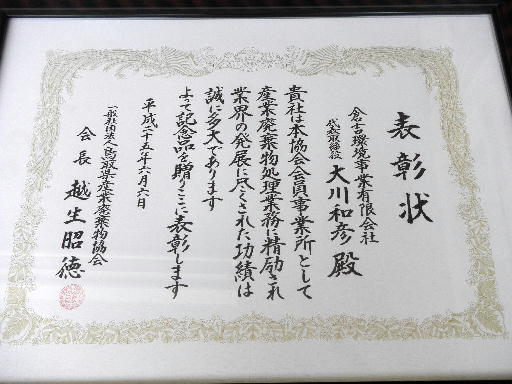 表彰状
倉吉環境事業有限会社
代表取締役 大川和彦 殿
貴社は本協会会員事業所として
産業廃棄物処理業務に精励され
業界の発展に尽くされた功績は
誠に多大であります
よって記念品を贈りここに表彰します
平成二十五年六月六日
一般社団法人鳥取県産業廃棄物協会
会長 越生昭徳